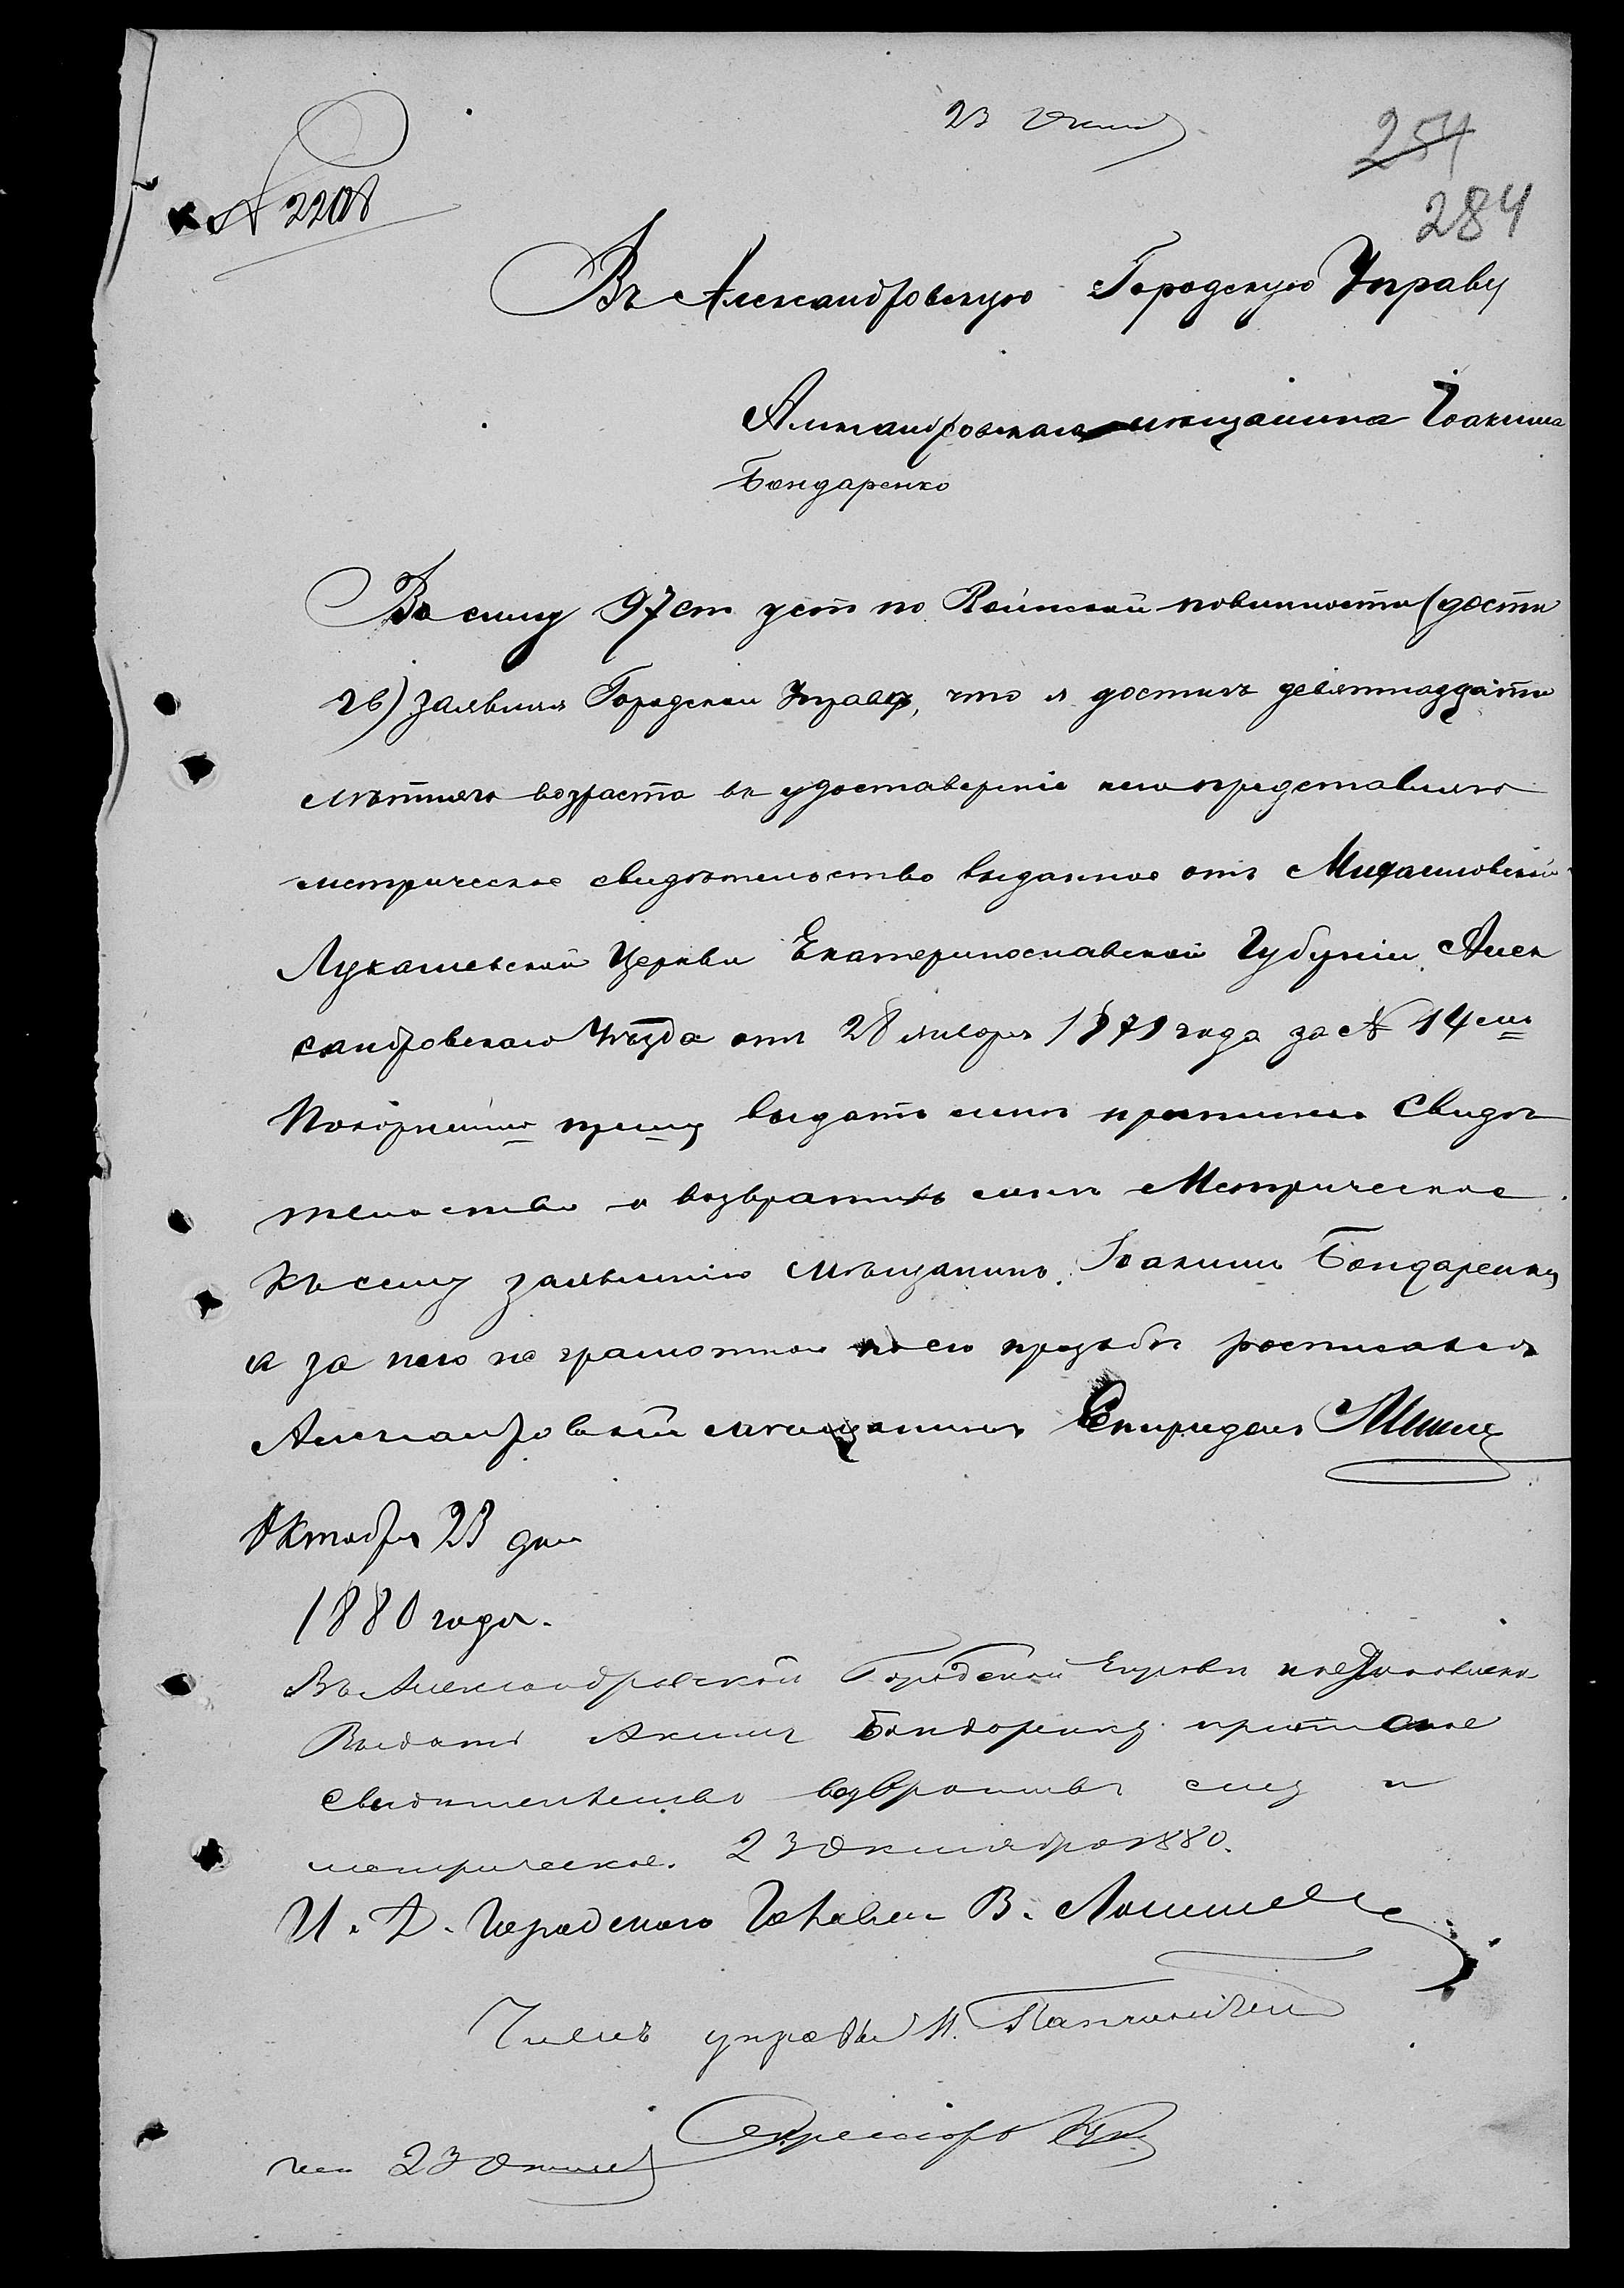 23 Окт
254
284
№ 2208
Въ Александровскую Городскую Управу
Александровскаго мещанина Іоакима
Бондаренко
Во силу 97 ст уст по Воинской повинности (дости
гъ) заявляя Городской Управѣ, что я достигъ девятнадцати
лѣтняго возраста въ удостоверніе чего представляю
метрическое свидѣтельство выданное отъ Михайловской
Лукашевской Церкви Екатеринославской Губерніи Алек
сандровскаго Уѣзда отъ 28 января 1879 года за № 14 см
Покорнейше прошу выдать мнѣ приписное Свидѣ
тельство а возвратить мнѣ Метрическое
Къ сему заявленію мѣщанинъ Іоакимъ Бондаренко
а за него не грамотнаго по его прозьбѣ росписался
Александровскій мѣщанинъ Спиридонъ
Октября 23 дня
1880 года.
Въ Александровской Городской Управѣ постановлено
Выдать Акиму Бондоренку приписное
свидѣтельство возвративъ ему и
метрическое. 23 Октября 1880.
И. Д. Городского Головы В.
Членъ управы И.
Секретарь
23 Октяб